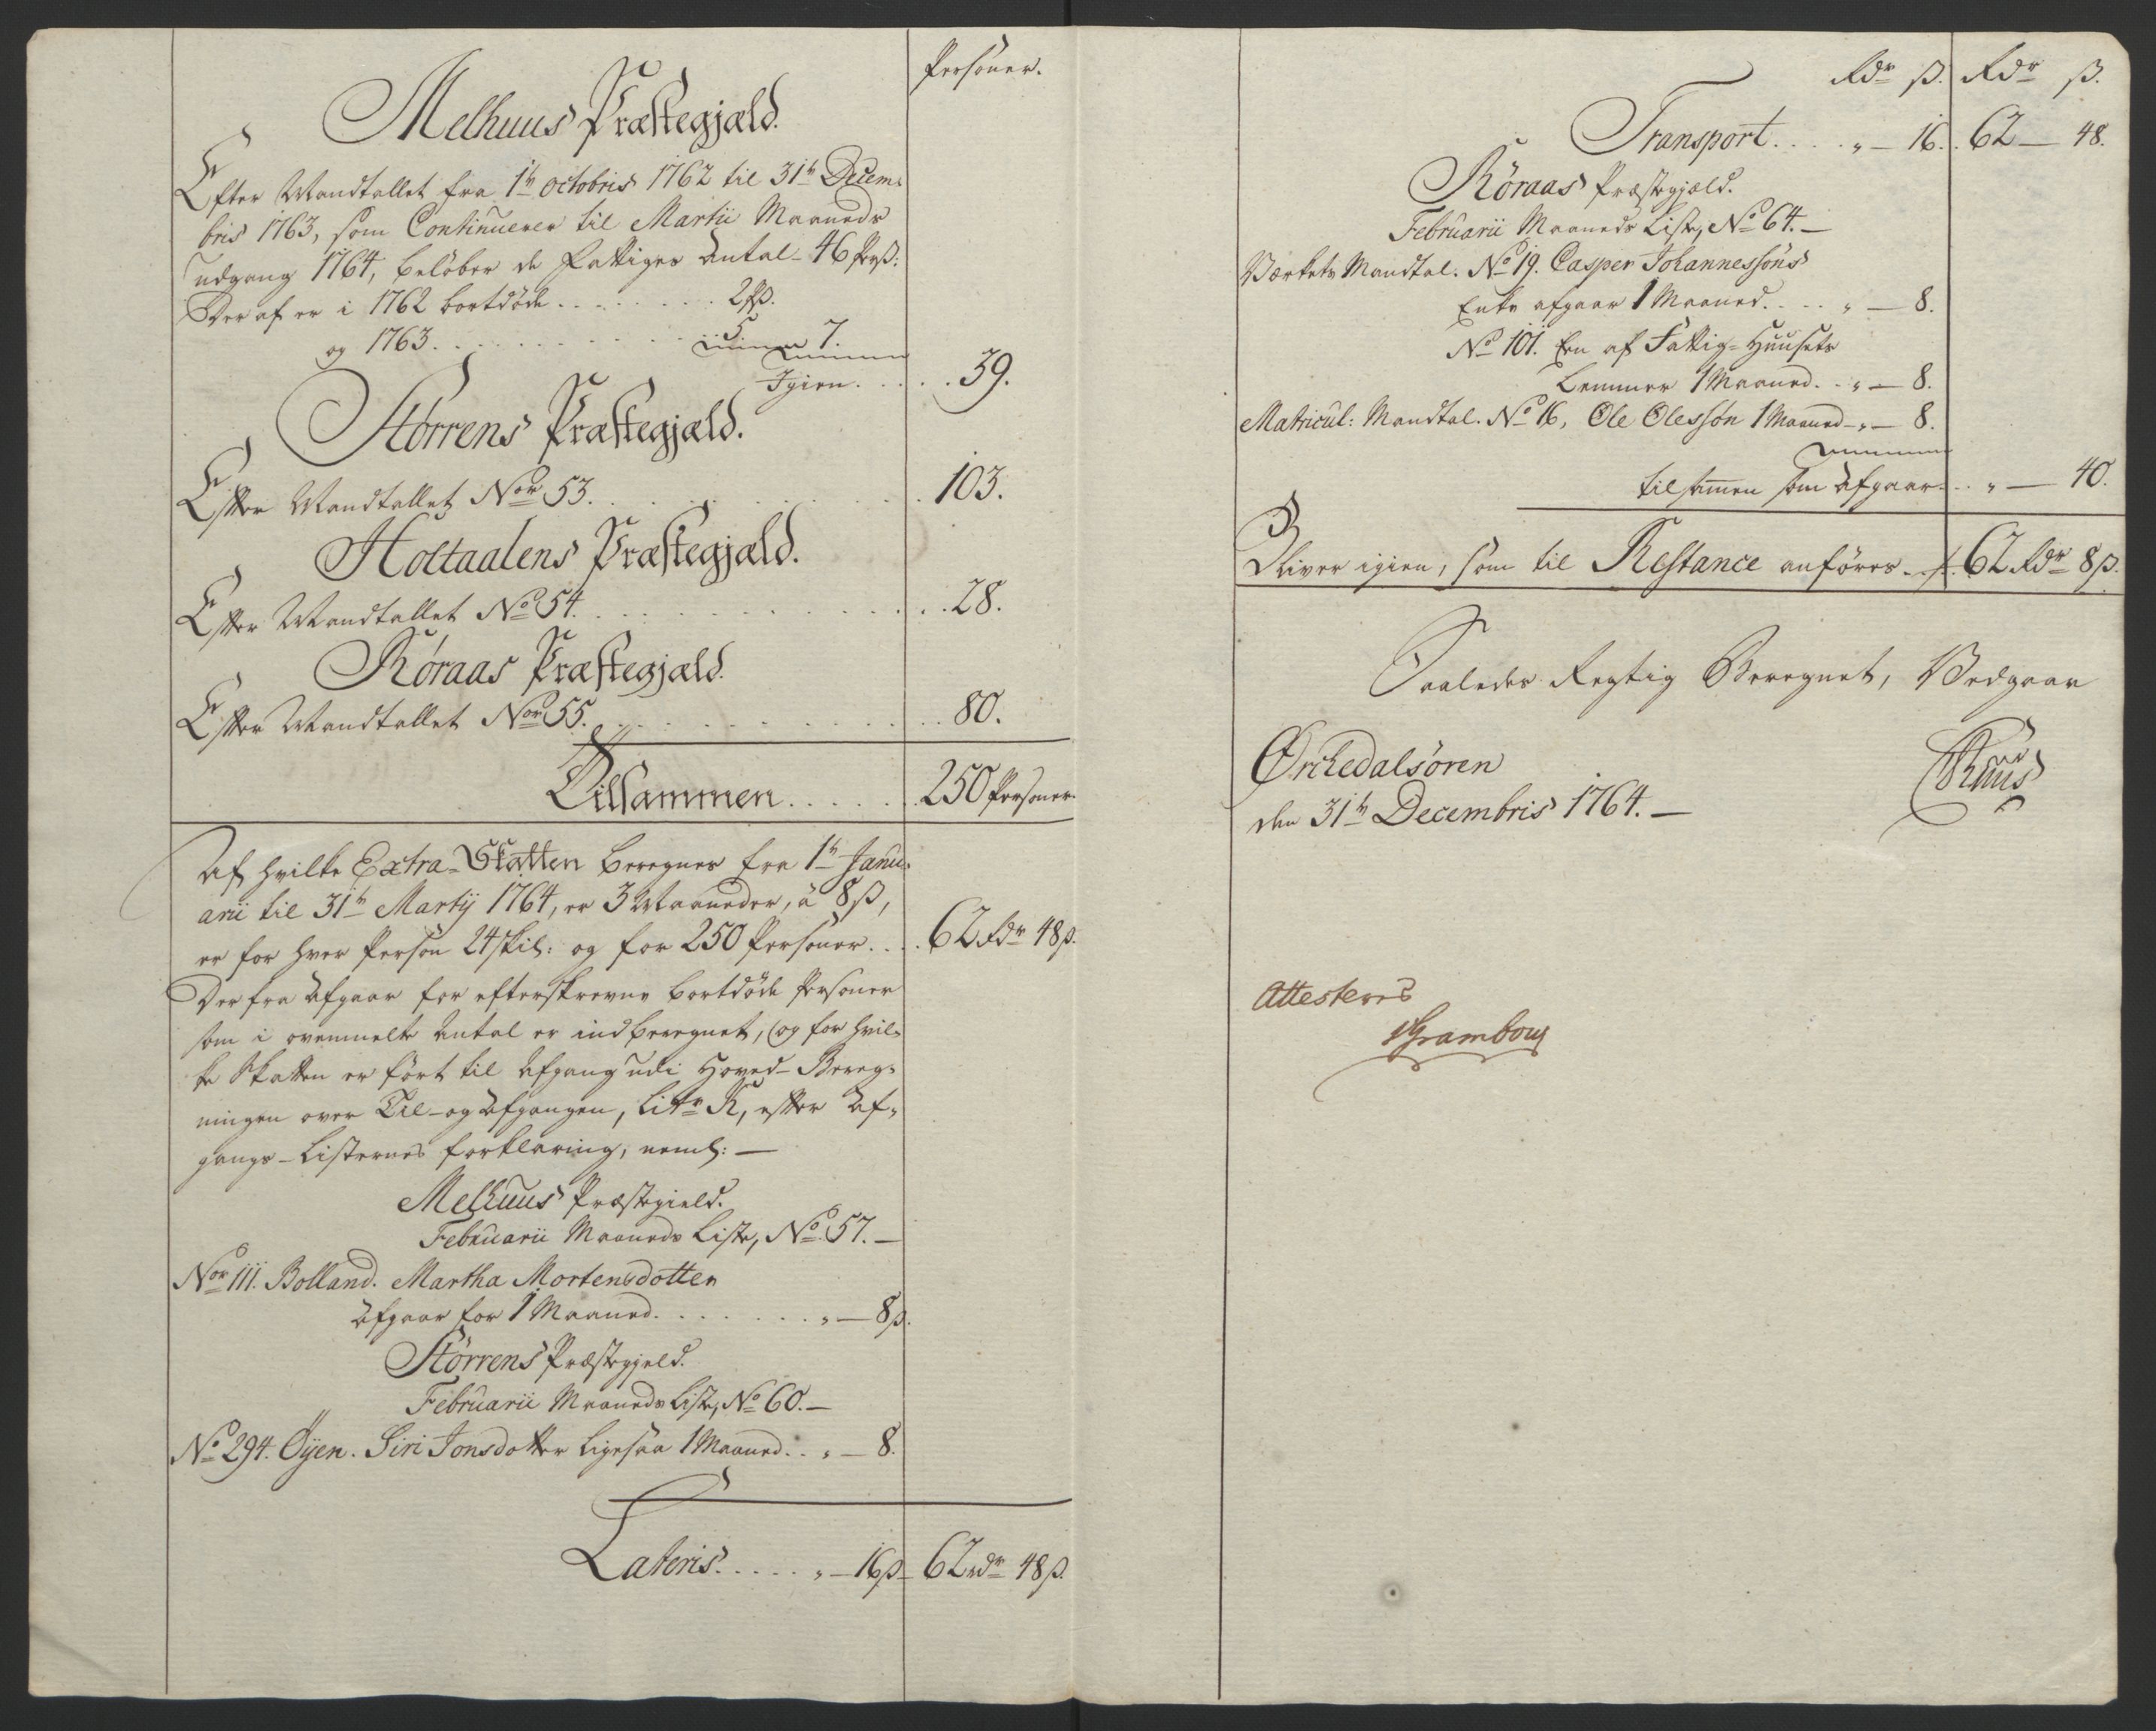 Personer.
Melhuus Præstegjæld.
Efter Mandtallet fra 1te Octobris 1762 til 31te Decem-
bris 1763, som Continuerer til Martii Maaneds
udgang 1764, beløber de Fattiges Antal - 46 Perß:
Der af er i 1762 bortdøde . . . . . . . 2 Pß.
og 1763 . . . . . . . . . . 5 7.
Igien . . . . . 39.
Störrens Præstegjæld.
Efter Mandtallet Nor 53. . . . . . . . . . . 103.
Holtaalens Præstegjæld.
Efter Mandtallet No 54. . . . . . . . . . . 28.
Röraas Præstegjæld.
Efter Mandtallet Nor 55. . . . . . . . . . . 80.
Tilsammen . . . . . . 250 Personer.
Af hvilke Extra-Skatten beregnes fra 1te Janu-
arii til 31te Martij 1764, er 3 Maaneder, á 8 ß,
er for hver Person 24 skil: og for 250 Personer . . . 62 Rdr 48 ß.
Der fra Afgaar for efterskrevne bortdöde Personer
som i ovenmelte Antal er indberegnet, og for hvil-
ke Skatten er fört til Afgang udi Hoved-Bereg-
ningen over Til- og Afgangen, Litr K, efter Af-
gangs-Listernes forklaring, neml: —
Melhuus Præstegield.
Februarii Maaneds Liste, No 57. —
Nor 111. Bolland. Martha Mortensdotter
Afgaar for 1 Maaned. . . . . . . . „ — 8 ß.
Störrens Præstegjeld.
Februarii Maaneds Liste, No 60. —
No 294. Öyen. Siri Jonsdotter Ligesaa 1 Maaned. . „ — 8.
Lateris. . . . . „ — 16 ß — 62 Rdr 48 ß.
Rdr ß. Rdr ß.
Transport. . . . . „ — 16. . 62 — 48.
Röraas Præstegjæld.
Februarii Maaneds Liste, No 64. —
Værkets Mandtal. No 19. Casper Johannessöns
Enke afgaar 1 Maaned. . . . „ — 8.
No 101. En af Fattig-Huusets
Lemmer 1 Maaned. . „ — 8.
Matricul: Mandtal. No 16, Ole Olessön 1 Maaned - „ — 8.
tilsammen som Afgaar . . . „ — 40.
Bliver igien, som til Restance anföres. . 62 Rdr 8 ß.
Saaledes Rigtig Beregnet, Vedgaar
Örchedalsören
den 31te Decembris 1764. —
Attesteres